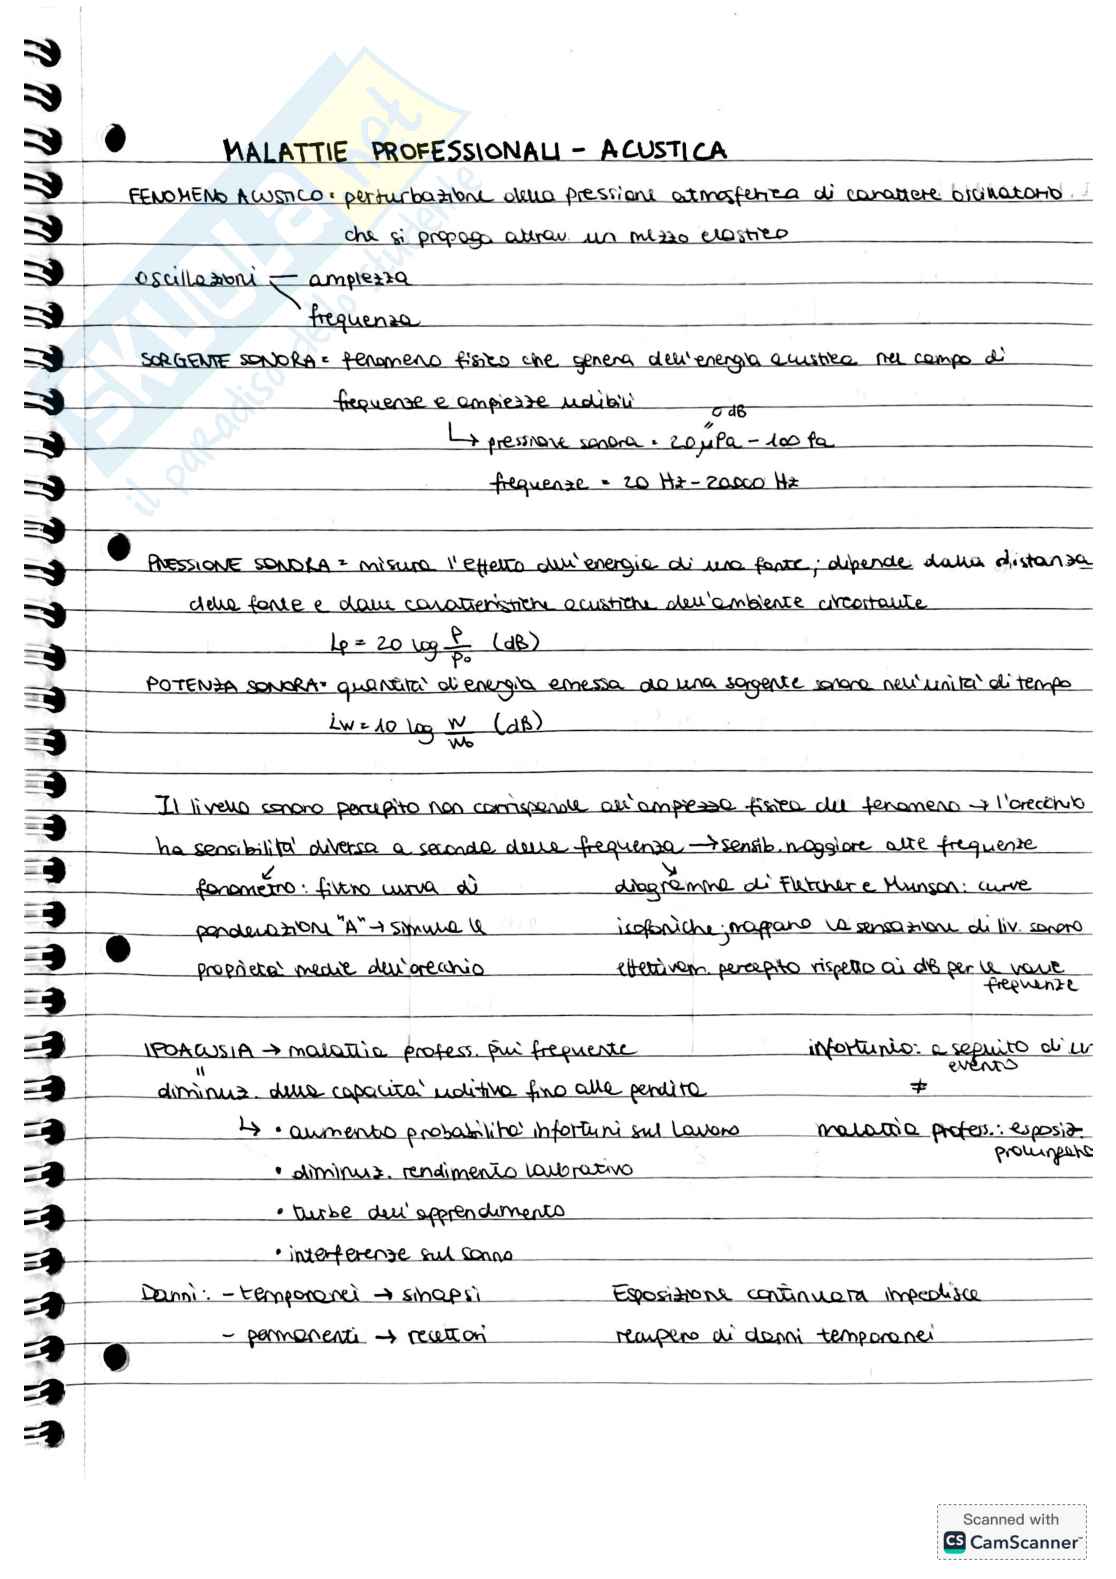 MALATTIE PROFESSIONALI - ACUSTICA
FENOMENO ACUSTICO = perturbazione della pressione atmosferica di carattere oscillatorio
che si propaga attrav. un mezzo elastico
oscillazioni — ampiezza
frequenza
SORGENTE SONORA = fenomeno fisico che genera dell'energia acustica nel campo di
frequenze e ampiezze udibili
0 dB
"
↳ pressione sonora = 20 µPa - 100 Pa
frequenze = 20 Hz - 20000 Hz
PRESSIONE SONORA = misura l'effetto dell'energia di una fonte; dipende dalla distanza
della fonte e dalle caratteristiche acustiche dell'ambiente circostante
Lp = 20 log P/P₀ (dB)
POTENZA SONORA = quantità di energia emessa da una sorgente sonora nell'unità di tempo
Lw = 10 log W/W₀ (dB)
Il livello sonoro percepito non corrisponde all'ampiezza fisica del fenomeno → l'orecchio
ha sensibilità diversa a seconda delle frequenza → sensib. maggiore alte frequenze
fonometro: filtro curva di
ponderazione "A" → simula le
proprietà medie dell'orecchio
diagramma di Fletcher e Munson: curve
isofoniche; mappano la sensazione di liv. sonoro
effettivam. percepito rispetto ai dB per le varie
frequenze
IPOACUSIA → malattia profess. più frequente
"
diminuz. della capacità uditiva fino alla perdita
↳ • aumento probabilità infortuni sul lavoro
• diminuz. rendimento lavorativo
• turbe dell'apprendimento
• interferenze sul sonno
infortunio: a seguito di un
evento
≠
malattia profess.: esposiz.
prolungata
Danni: - temporanei → sinapsi
- permanenti → recettori
Esposizione continuata impedisce
recupero di danni temporanei
SKUOLA.net
il paradiso dello studente
Scanned with
CS CamScanner